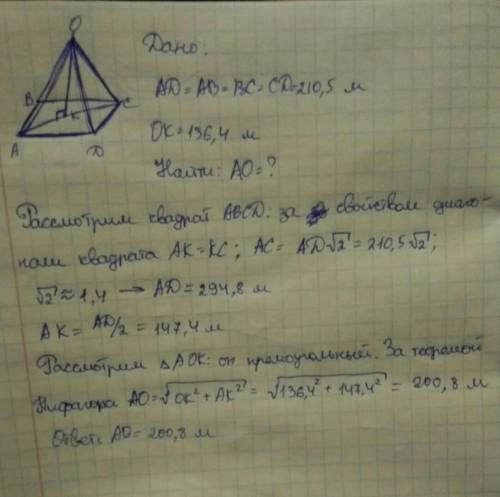 O
Дано:
B C
K
A D
AD = AB = BC = CD = 210,5 м
OK = 136,4 м
Найти: AO = ?
Рассмотрим квадрат ABCD: за свойством диаго-
нали квадрата AK = KC; AC = AD·√2 = 210,5√2;
√2 ≈ 1,4 → AD = 294,8 м
AK = AD/2 = 147,4 м
Рассмотрим △AOK: он прямоугольный. За теоремой
Пифагора AO = √OK² + AK² = √136,4² + 147,4² = 200,8 м
Ответ: AO = 200,8 м